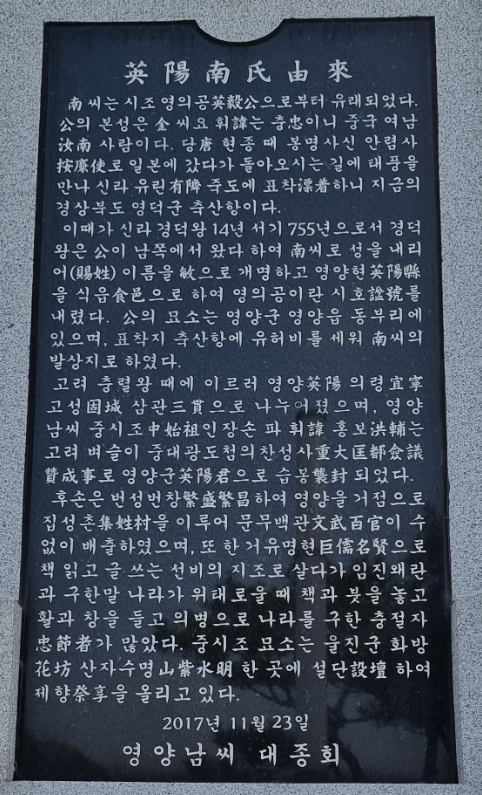 英陽南氏由來
南 씨는 시조 영의공英毅公으로부터 유래되었다.
公의 본성은 金 씨요 휘諱는 충忠이니 중국 여남
汝南 사람이다. 당唐 현종 때 봉명사신 안렴사
按廉使로 일본에 갔다가 돌아오시는 길에 태풍을
만나 신라 유린有隣 죽도에 표착漂着하니 지금의
경상북도 영덕군 축산항이다.
이때가 신라 경덕왕 14년 서기 755년으로서 경덕
왕은 公이 남쪽에서 왔다 하여 南씨로 성을 내리
어(賜姓) 이름을 敏으로 개명하고 영양현英陽縣
을 식읍食邑으로 하여 영의공이란 시호諡號를
내렸다. 公의 묘소는 영양군 영양읍 동부리에
있으며, 표착지 축산항에 유허비를 세워 南씨의
발상지로 하였다.
고려 충렬왕 때에 이르러 영양英陽 의령宜寧
고성固城 삼관三貫으로 나누어졌으며, 영양
남씨 중시조中始祖인장손 파 휘諱 홍보洪輔는
고려 벼슬이 중대광도첨의찬성사重大匡都僉議
贊成事로 영양군英陽君으로 습봉襲封 되었다.
후손은 번성번창繁盛繁昌하여 영양을 거점으로
집성촌集姓村을 이루어 문무백관文武百官이 수
없이 배출하였으며, 또 한 거유명현巨儒名賢으로
책 읽고 글 쓰는 선비의 지조로 살다가 임진왜란
과 구한말 나라가 위태로울 때 책과 붓을 놓고
활과 창을 들고 의병으로 나라를 구한 충절자
忠節者가 많았다. 중시조 묘소는 울진군 화방
花坊 산자수명山紫水明 한 곳에 설단設壇 하여
제향祭享을 올리고 있다.
2017년 11월 23일
영양남씨 대종회